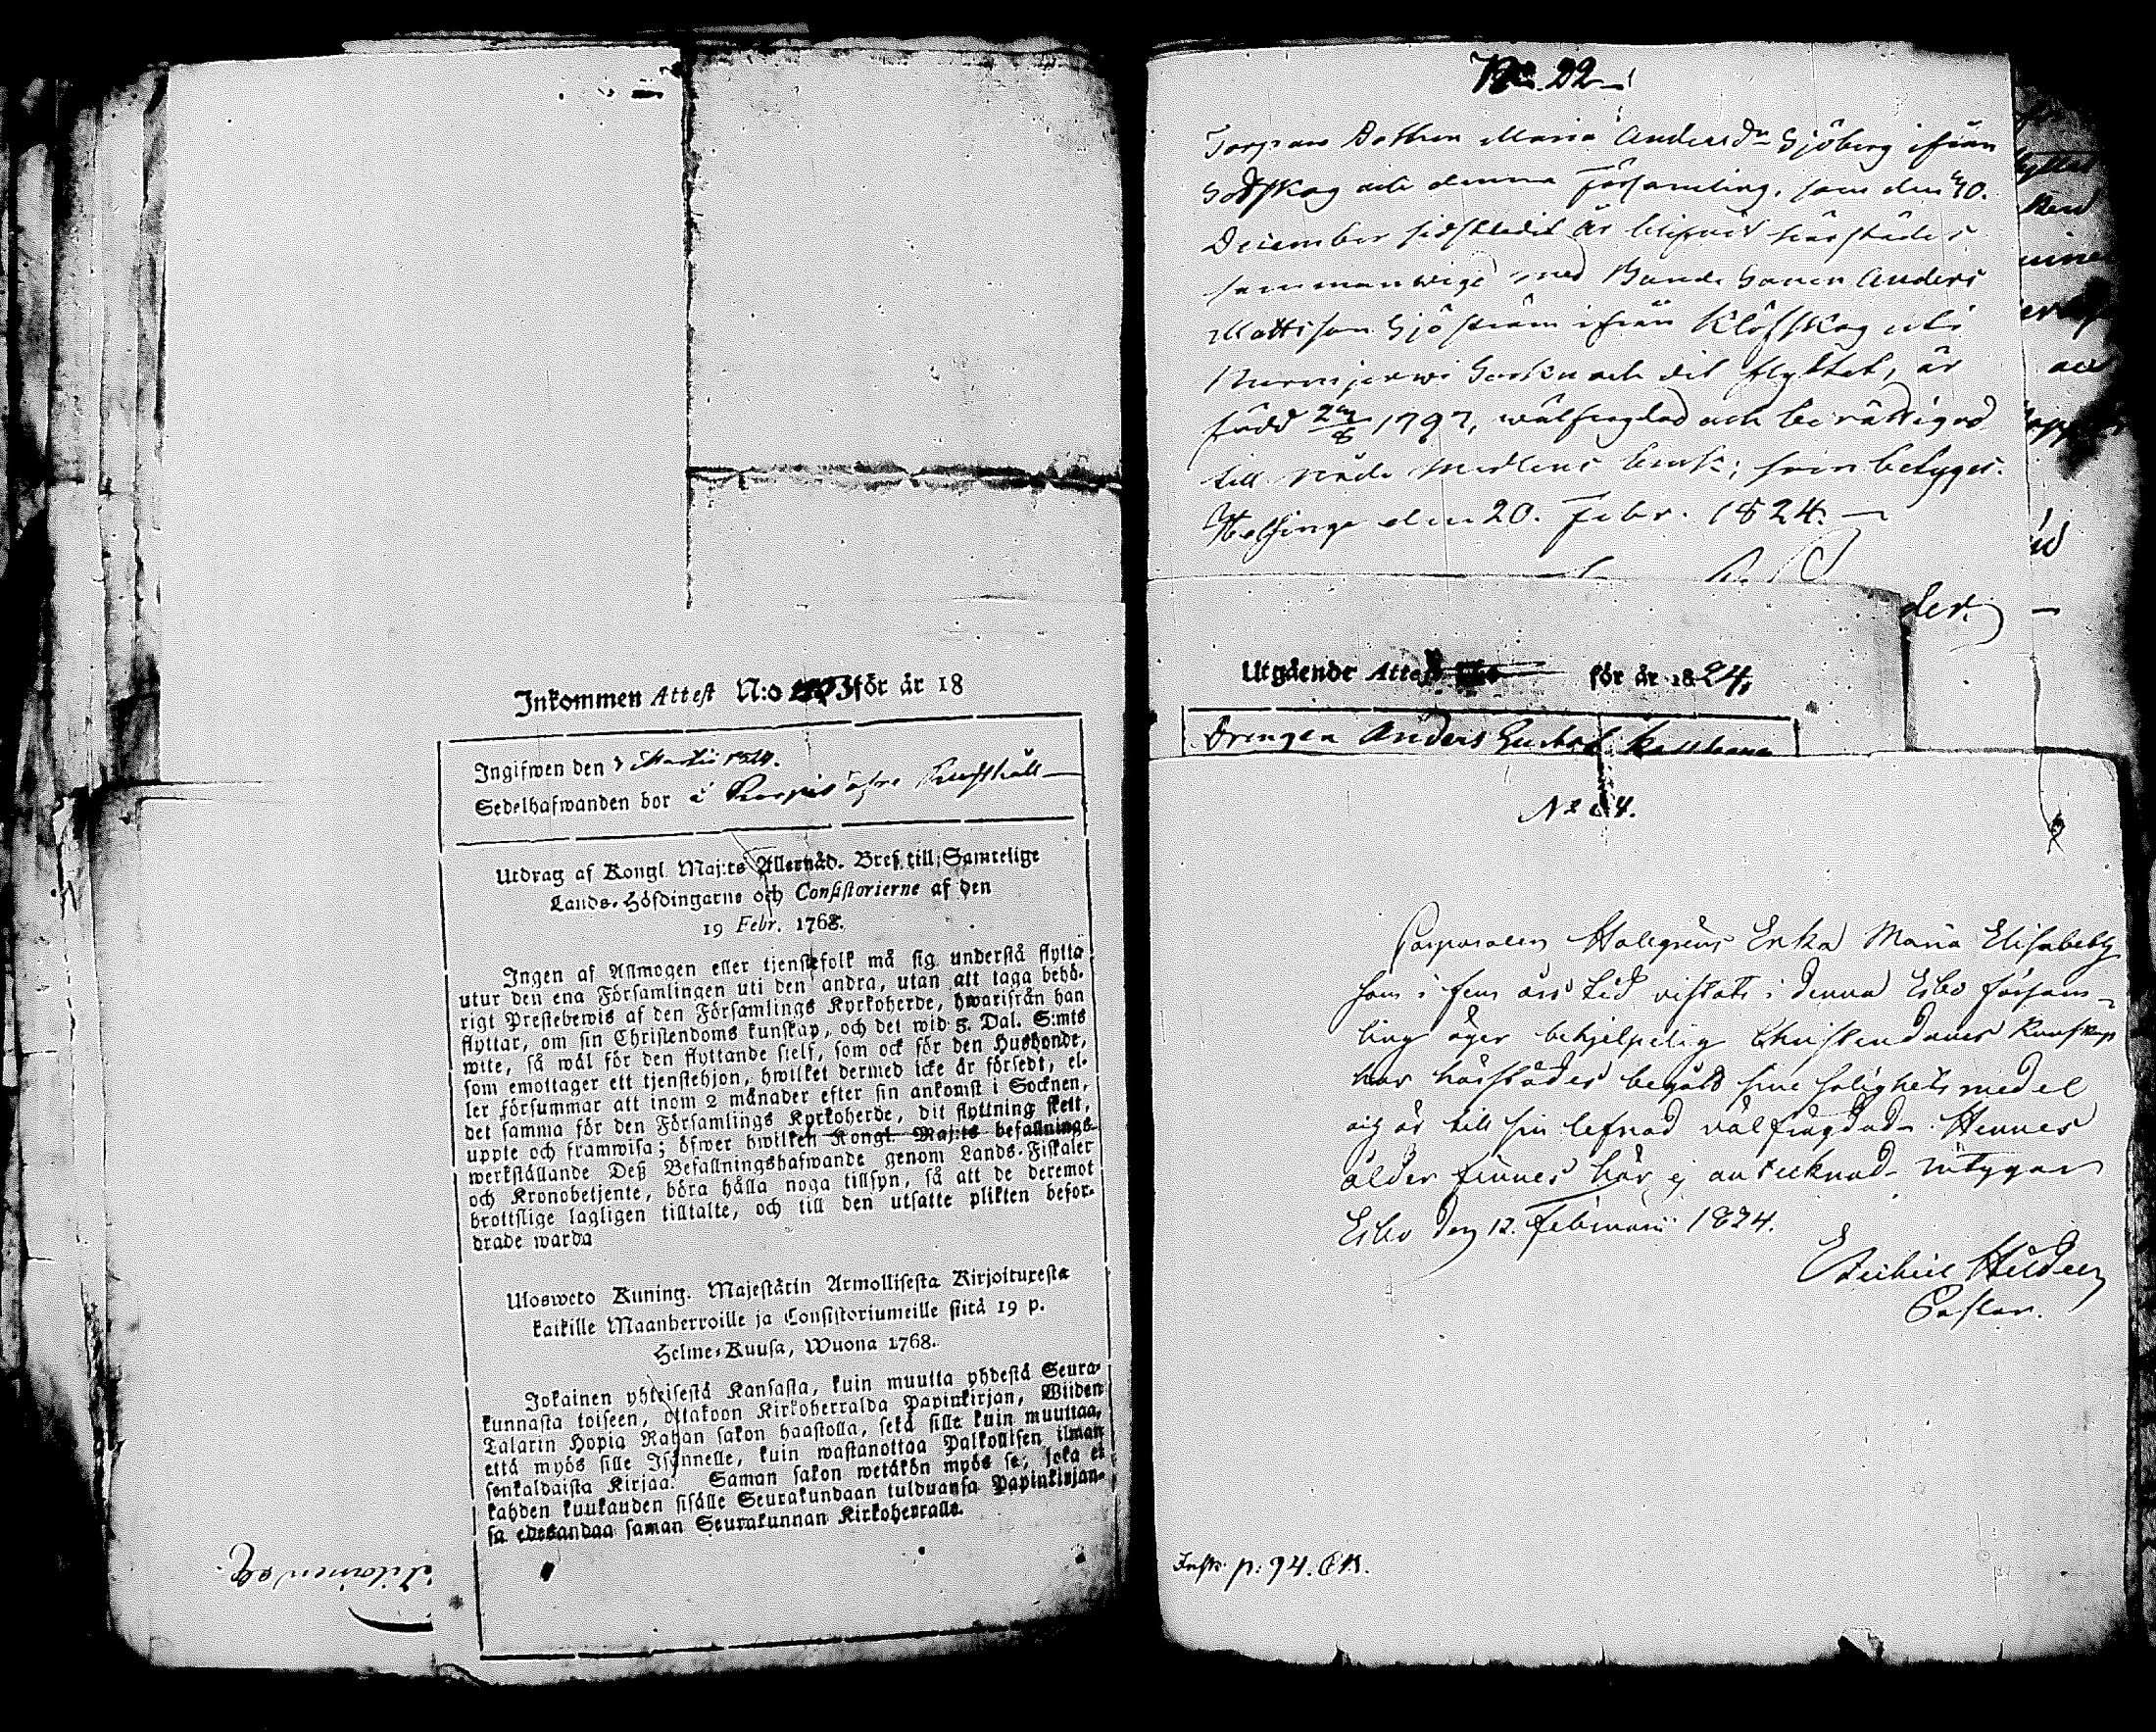 Inkommen Attest N:o 103 för år 18
Ingifwen den Martii 1824.
Sedelhafwanden bor
Utdrag af Kongl. Maj:ts Allernåd. Bref till Samtelige
Lands-Höfdingarne och Consistorierne af den
19 Febr. 1768.
Ingen af Allmogen eller tjenstefolk må sig understå flytta
utur den ena Församlingen uti den andra, utan att taga behö-
rigt Prestebewis af den Församlings Kyrkoherde, hwarifrån han
flyttar, om sin Christendoms kunskap, och det wid 5. Dal. S:mts
wite, så wäl för den flyttande sielf, som ock för den Husbonde,
som emottager ett tjenstehjon, hwilket dermed icke är försedt, el-
ler försummar att inom 2 månader efter sin ankomst i Socknen,
det samma för den Församlings Kyrkoherde, dit flyttning skett,
uppte och framwisa; öfwer hwilken Kongl. Maj:ts befallnings
werkställande Deß Befallningshafwande genom Lands-Fiskaler
och Kronobetjente, böra hålla noga tillsyn, så att de deremot
brottslige lagligen tilltalte, och till den utsatte plikten befor-
drade warda
Uloswcto Kuning. Majestätin Armollisesta Kirjoituxesta
kaikille Maanherroille ja Consistoriumeille siitä 19 p.
Helme-Kuusa, Wuona 1768.
Jokainen yhteisestä Kansasta, kuin muutta yhdestä Seura-
kunnasta toiseen, ottakoon Kirkoherralda Papinkirjan, Wiiden
Talarin Hopia Rahan sakon haastolla, sekä sille kuin muuttaa,
että myös sille Isännelle, kuin wastanottaa Palkollisen ilman
senkaldaista Kirjaa. Saman sakon wetäkön myös se, joka ei
kahden kuukauden sisälle Seurakundaan tulduansa Papinkirjan-
sa edesandaa saman Seurakunnan Kirkoherralle.
No. 22
Torpare Dottren Maria Andersdr Sjöberg ifrån
och denna Församling, som den 30.
December sidstledit är blifwit härstädes
sammanwigd med Bonde Sonen Anders
Mattsson Sjöström ifrån Klöfskog uti
Nurmijerwi Sockn och dit flyttet, är
född 1797, wälfregdad och berättigad
till Nåde Medlens bruk; som betyges.
Helsinge den 20. Febr. 1824.
Utgående Attest för år 1824,
Drengen Anders Gustaf
No 64.
Corporalen Halegréns Enka Maria Elisabeth
som i fem års tid vistats i denna Esbo försam-
ling äger behjelpelig Christendoms Kunskap
har härstädes begått sine salighets medel
och är till sin lefnad välfrägdad. Hennes
ålder finnes här ej antecknad. intygar
Esbo den 12. Februarii 1824.
Hildeen
Pastor.
Inskr. p: 94.